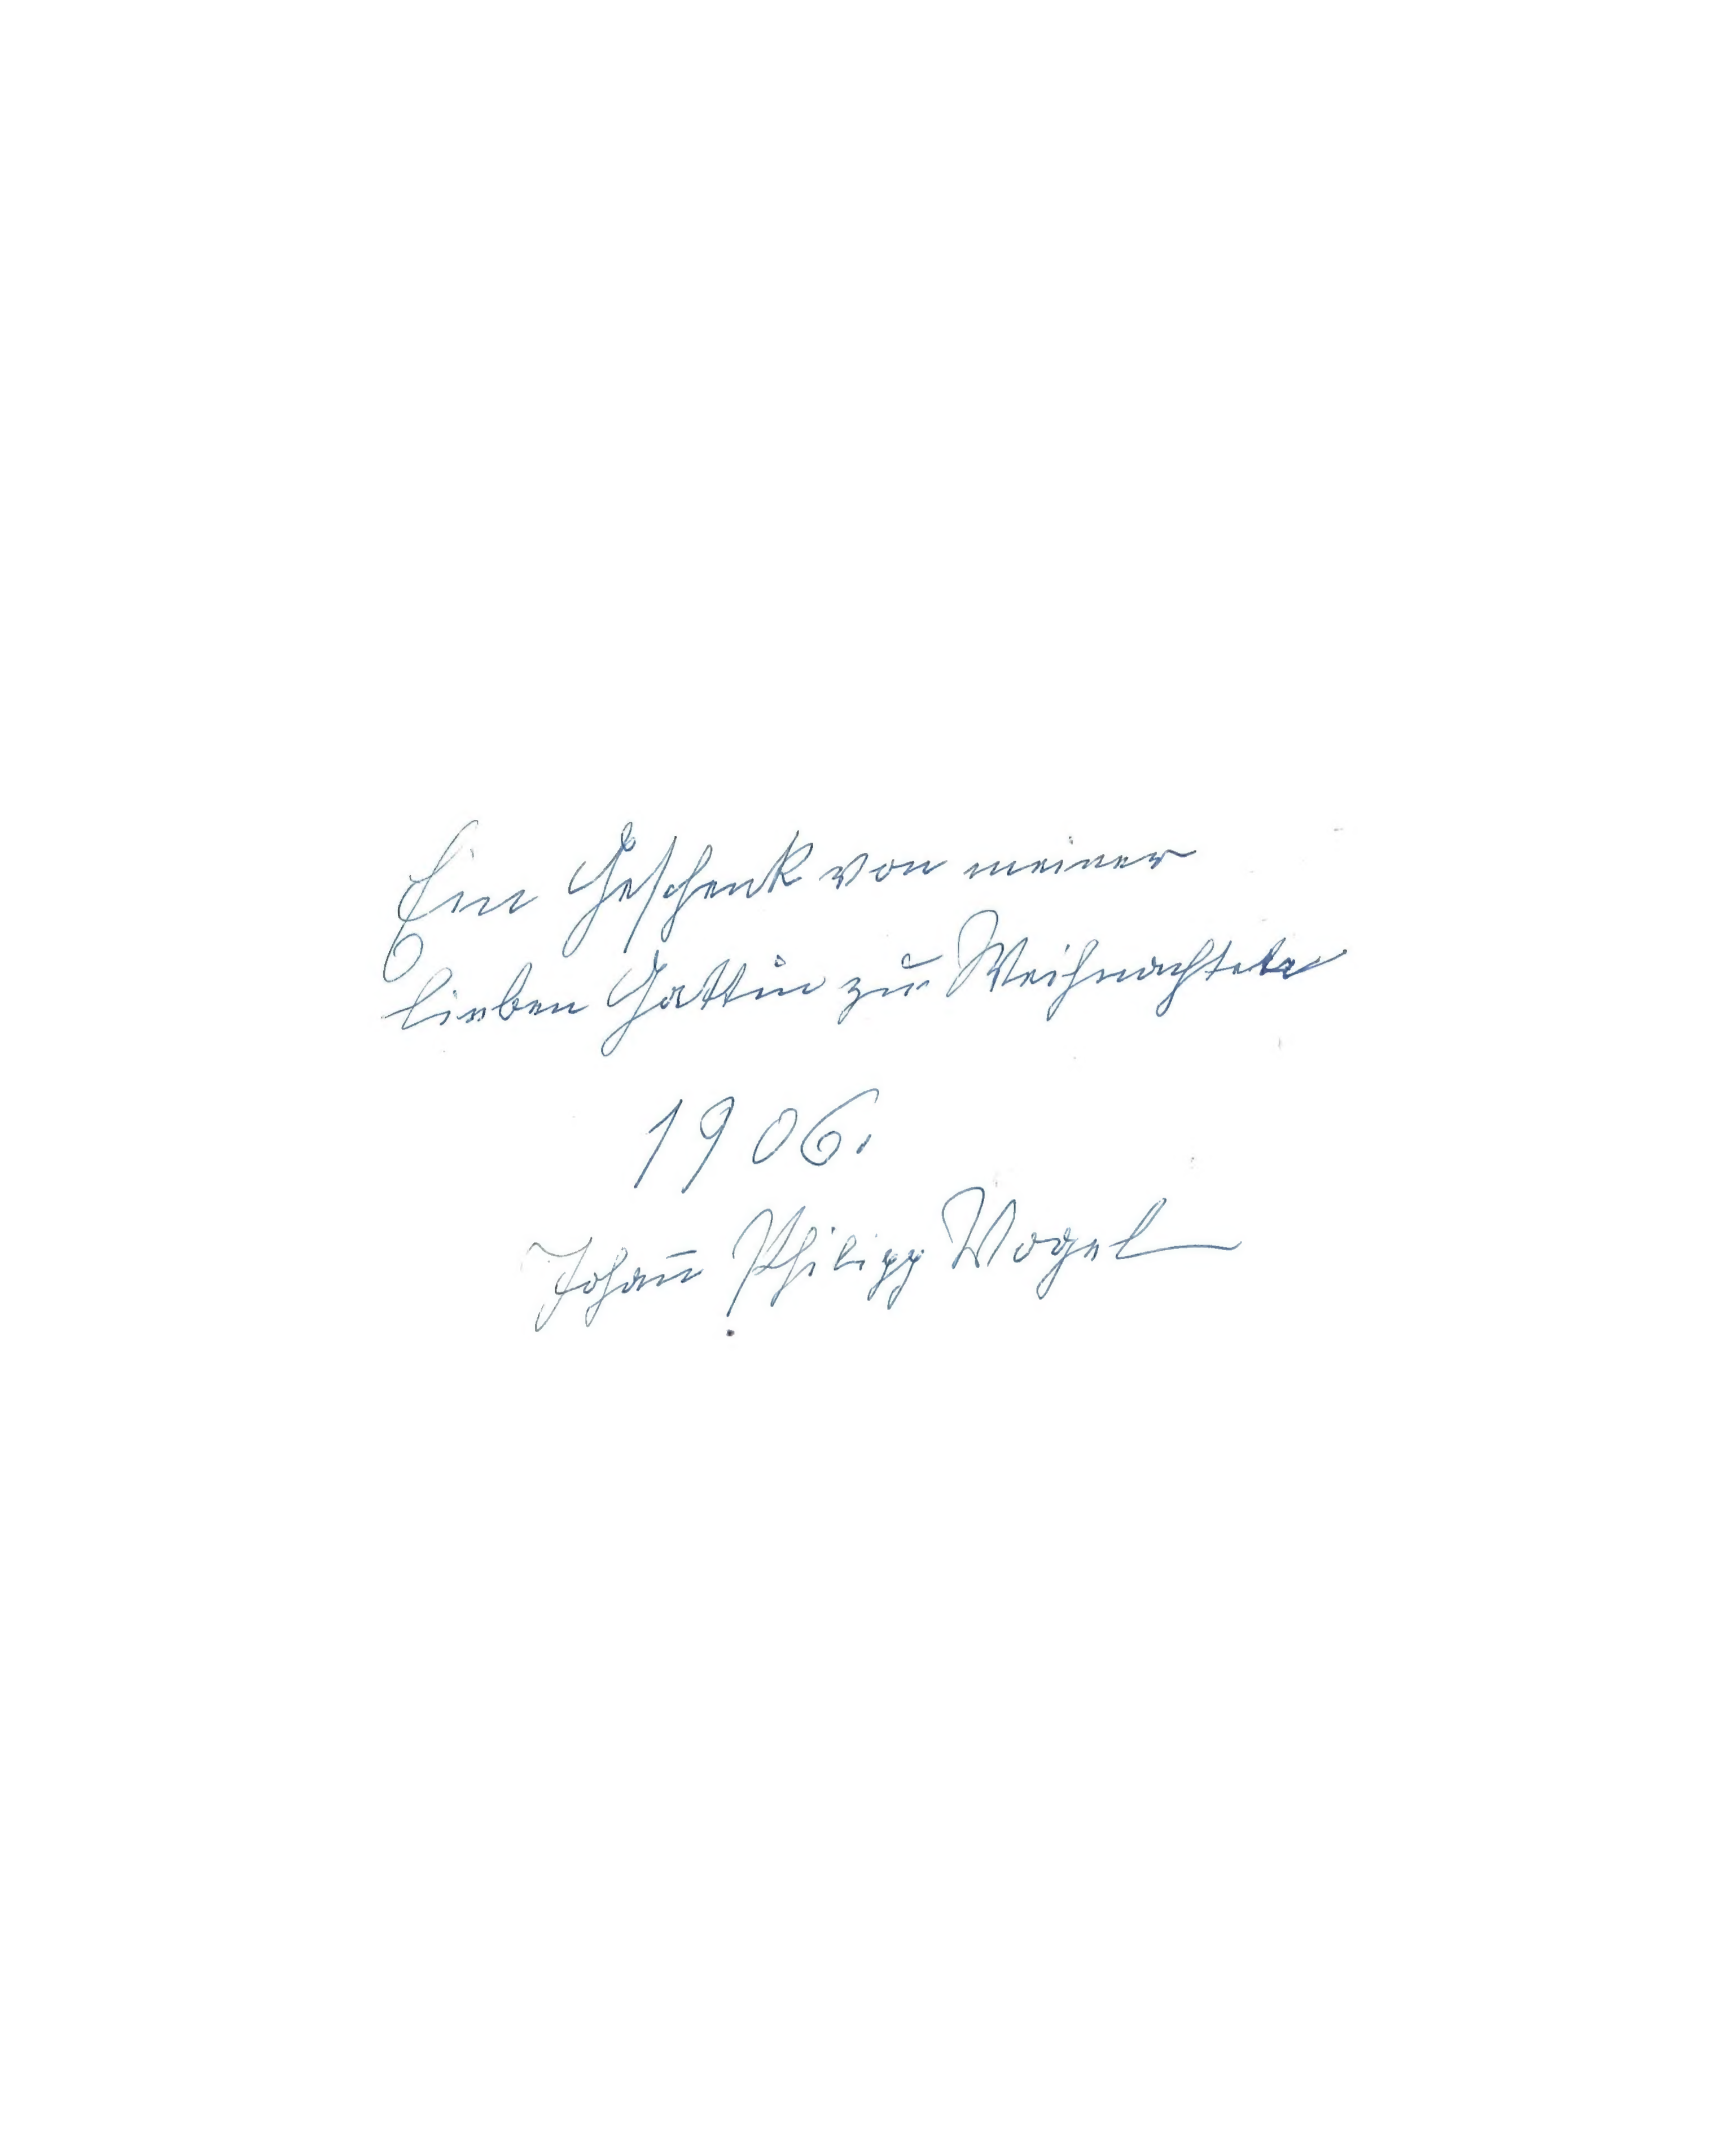 Ein Geschenk von meiner
lieben Gattin zu Weihnachten
1906.
Johan̄ Philipp Vogel